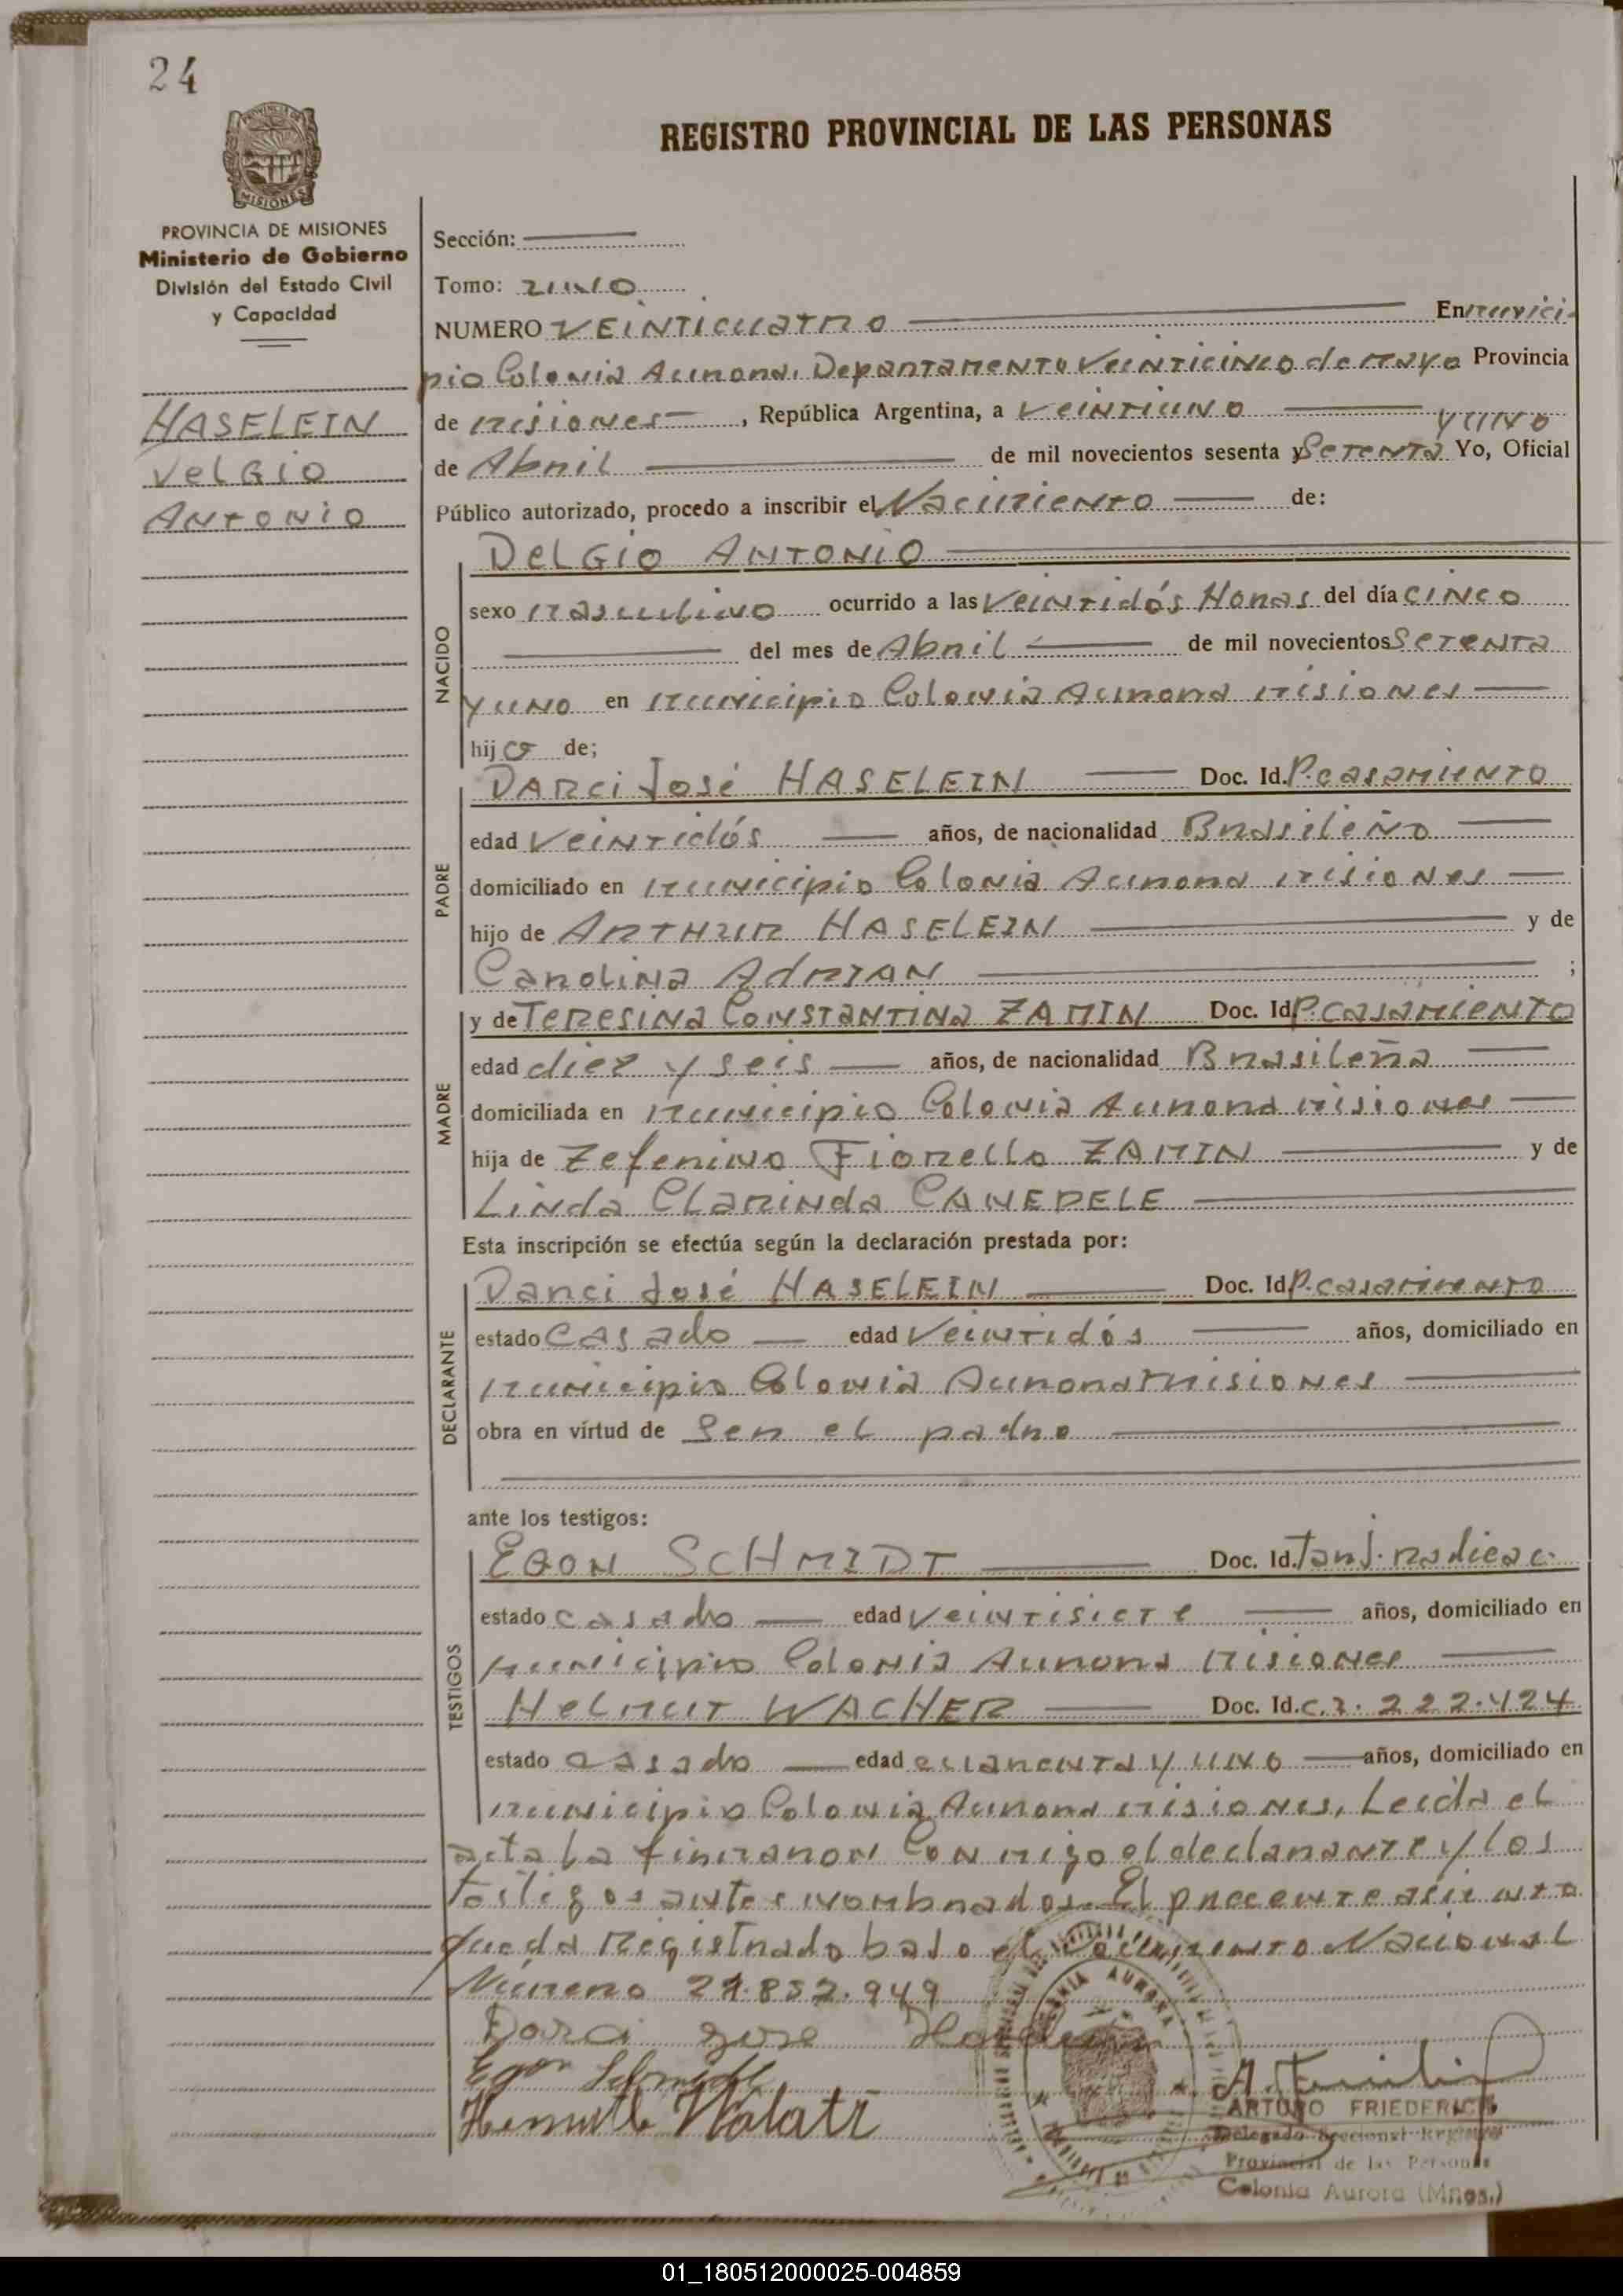 24
REGISTRO PROVINCIAL DE LAS PERSONAS
PROVINCIA DE MISIONES
Ministerio de Gobierno
División del Estado Civil
y Capacidad
HASELEIN
VELGIO
ANTONIO
Sección:
Tomo: uno
NUMERO VEINTICUATRO En munici-
pio Colonia Aurora. Departamento Veinticinco de mayo Provincia
de misiones, República Argentina, a veintiuno
y uno
de Abril de mil novecientos sesenta y Setenta Yo, Oficial
Público autorizado, procedo a inscribir el Nacimiento de:
NACIDO
DELGIO ANTONIO
sexo masculino ocurrido a las veintidós Horas del día CINCO
del mes de Abril de mil novecientos Setenta
y uno en municipio Colonia Aurora misiones
hijo de;
PADRE
DARCI José HASELEIN Doc. Id. P. casamiento
edad veintidós años, de nacionalidad Brasileño
domiciliado en municipio Colonia Aurora misiones
hijo de ARTHUR HASELEIN y de
Carolina ADRIAN ;
MADRE
y de TERESINA CONSTANTINA ZAMIN Doc. Id. P. casamiento
edad diez y seis años, de nacionalidad Brasileña
domiciliada en municipio Colonia Aurora misiones
hija de Zeferino Fiorello ZAMIN y de
Linda Clarinda CANEPELE
Esta inscripción se efectúa según la declaración prestada por:
DECLARANTE
Darci José HASELEIN Doc. Id. P. casamiento
estado casado edad veintidós años, domiciliado en
municipio Colonia Aurora misiones
obra en vírtud de Ser el padre
ante los testigos:
TESTIGOS
EGON SCHMIDT Doc. Id. Tarj. radicac.
estado casado edad veintisiete años, domiciliado en
municipio Colonia Aurora misiones
Helmut WACHER Doc. Id. C.I. 222.424
estado casado edad cuarenta y uno años, domiciliado en
municipio Colonia Aurora misiones, Leída el
acta la firmaron conmigo el declarante y los
testigos antes nombrados. El precente asiento
queda Registrado bajo el Documento Nacional
Número 21.852.949
Darci Jose Haselein
Egon Schmidt
COLONIA AURORA
ARTURO FRIEDERICH
Delegado Seccional Registro
Provincial de las Personas
Colonia Aurora (Mnes.)
01_180512000025-004859